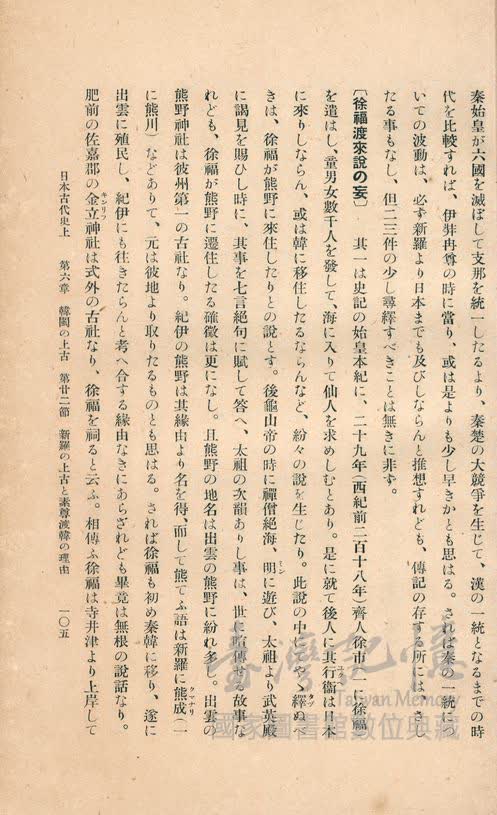 秦始皇が六國を滅ぼして支那を統一したるより、秦楚の大競爭を生じて、漢の一統となるまでの時
代を比較すれば、伊弉冉尊の時に當り、或は是よりも少し早きかとも思はる。されば秦の一統につ
いての波動は、必ず新羅より日本までも及びしならんと推想すれども、傳記の存する所には、さし
たる事もなし、但二三件の少し尋繹すべきことは無きに非ず。
〔徐福渡來說の妄〕 其一は史記の始皇本紀に、二十九年(西紀前二百十八年)齊人徐市(一に徐福)
を遣はし、童男女數千人を發して、海に入りて仙人を求めしむとあり。是に就て後人に其行衞は日本
に來りしならん、或は韓に移住したるならんなど、紛々の說を生じたり。此說の中にやゝ繹ぬべ
きは、徐福が熊野に來住したりとの說とす。後龜山帝の時に禪僧絕海、明に遊び、太祖より武英殿
に謁見を賜ひし時に、其事を七言絕句に賦して答へ、太祖の次韻ありし事は、世に喧傳する故事な
れども、徐福が熊野に遷住したる確徵は更になし。且熊野の地名は出雲の熊野に紛れ多し。出雲の
熊野神社は彼州第一の古社なり。紀伊の熊野は其緣由より名を得、而して熊てふ語は新羅に熊成(一
に熊川)などありて、元は彼地より取りたるものとも思はる。されば徐福も初め秦韓に移り、遂に
出雲に殖民し、紀伊にも往きたらんと考へ合する緣由なきにあらざれども畢竟は無根の說話なり。
肥前の佐嘉郡の金立神社は式外の古社なり、徐福を祠ると云ふ。相傳ふ徐福は寺井津より上岸して
日本古代史上 第六章 韓閩の上古 第廿二節 新羅の上古と素尊渡韓の理由 一〇五
臺灣記憶
Taiwan Memory
國家圖書館數位典藏